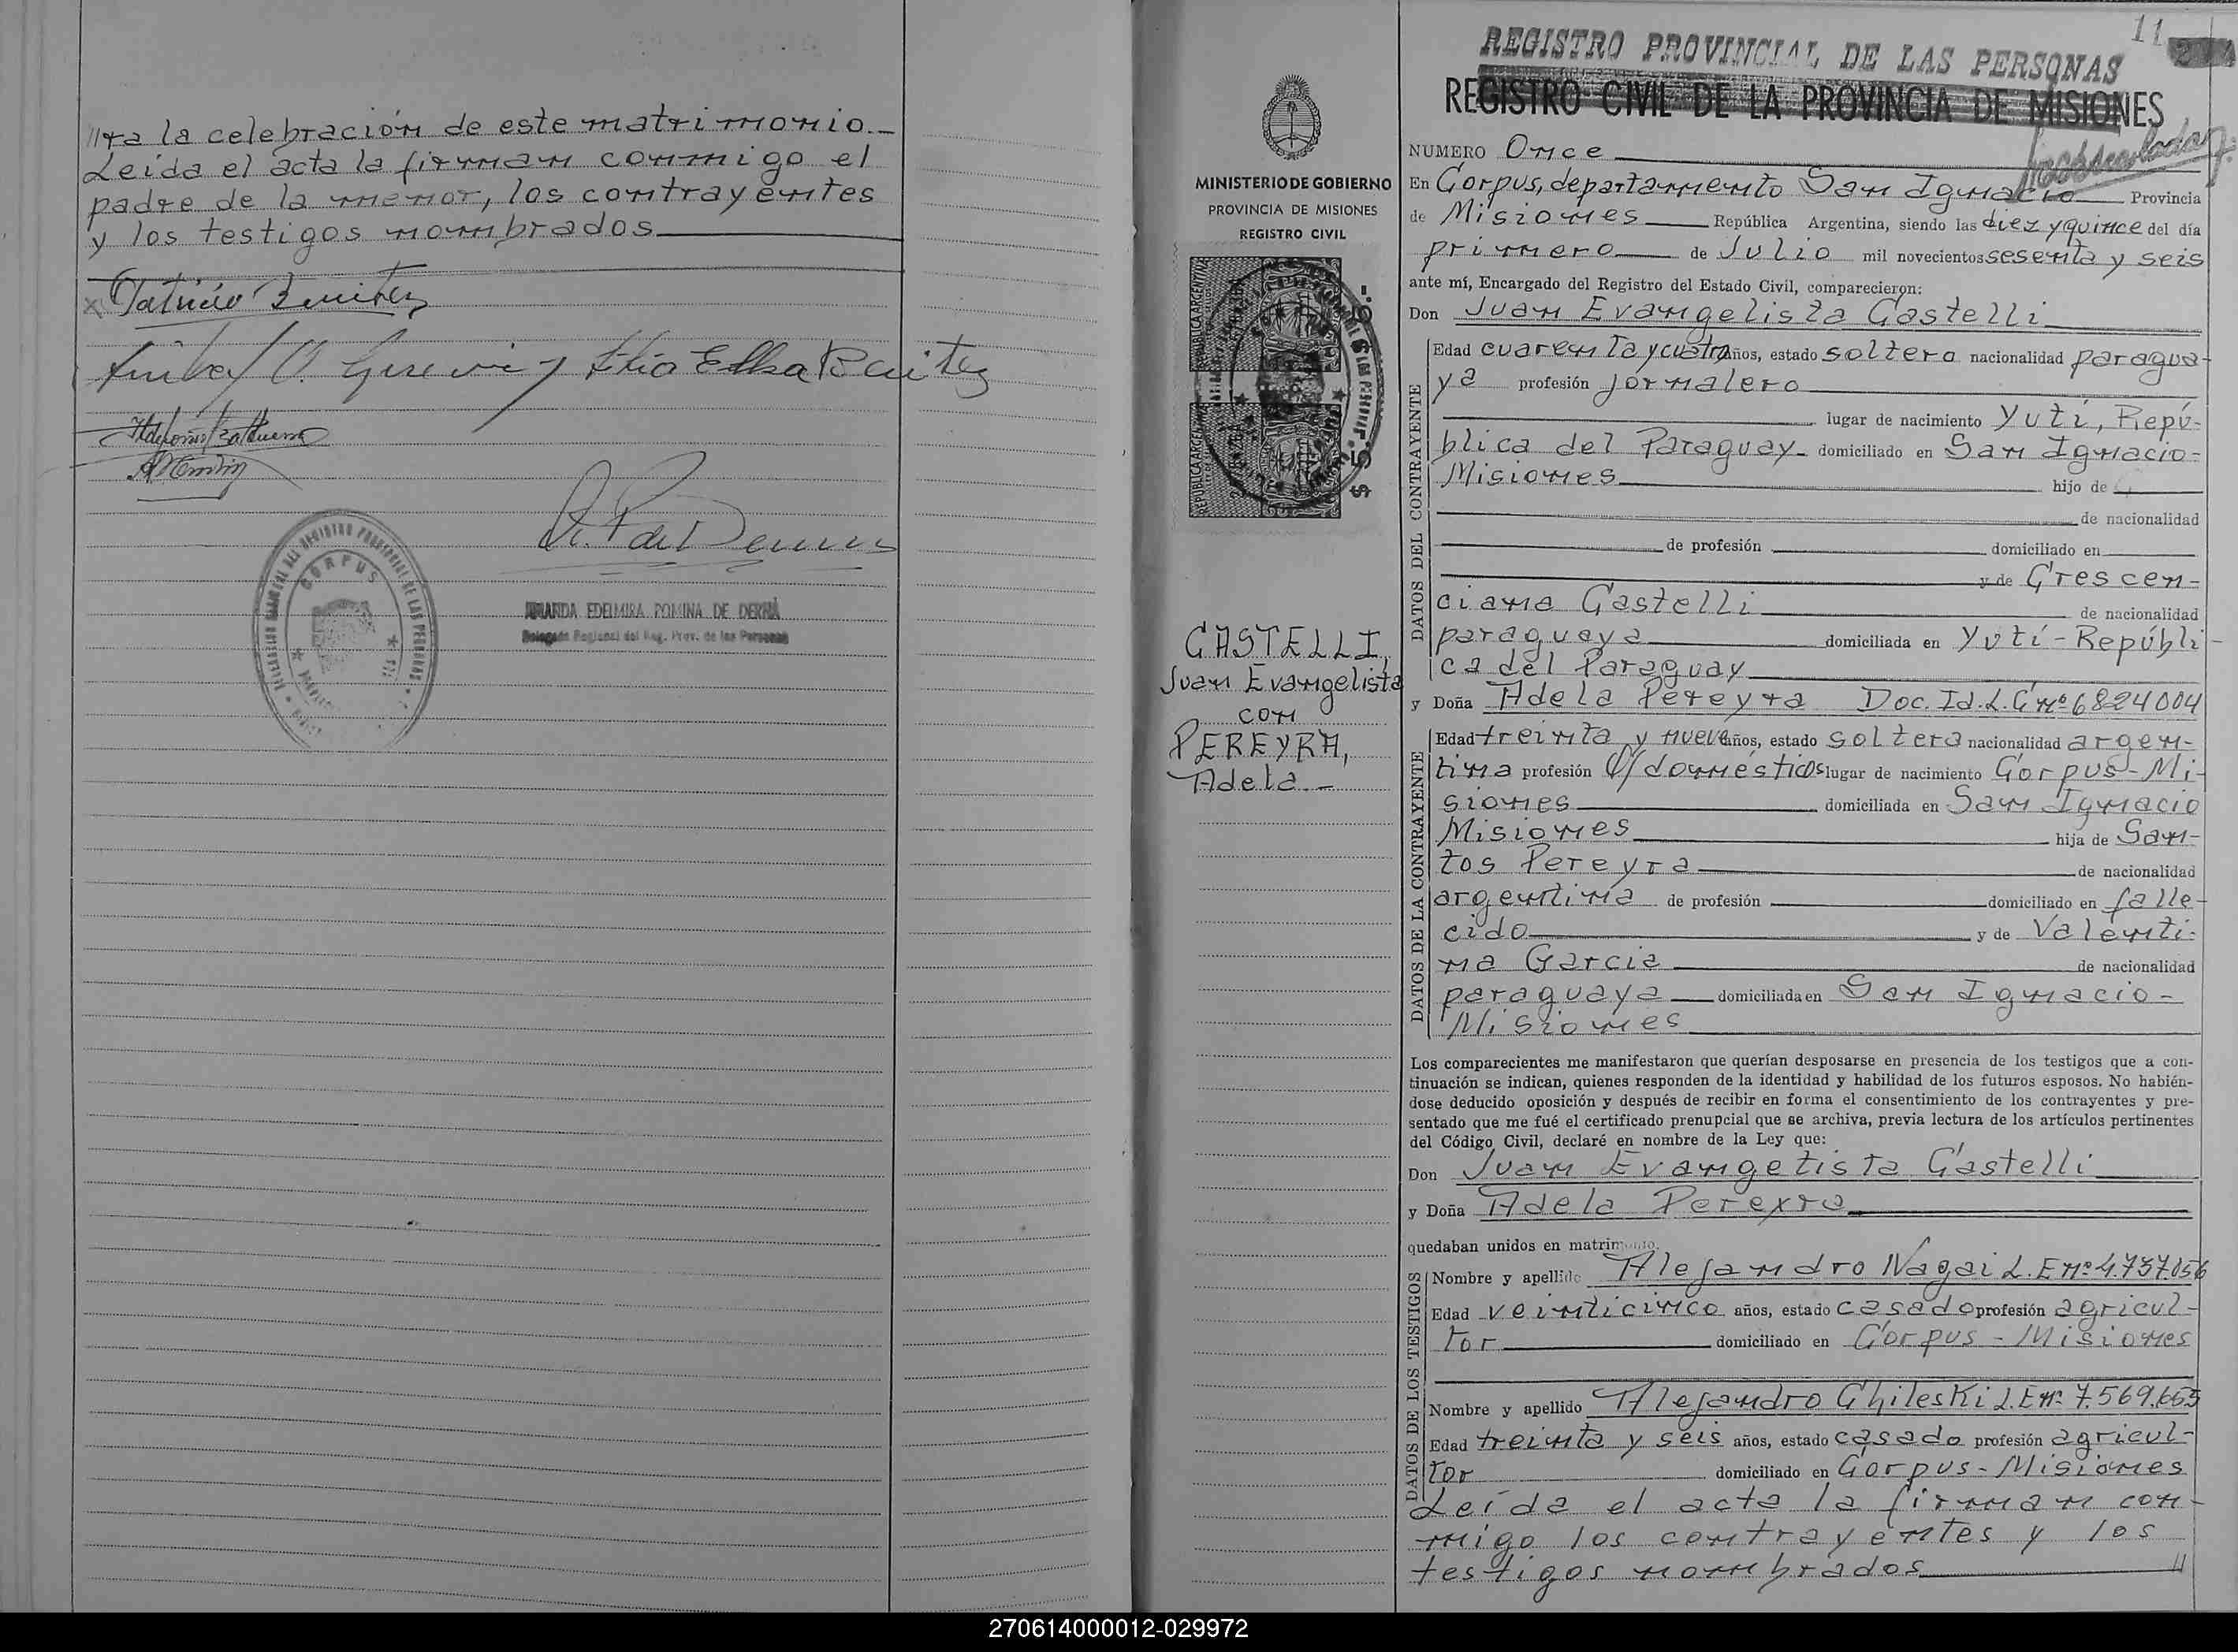 //ra la celebración de este matrimonio.-
Leída el acta la firman conmigo el
padre de la menor, los contrayentes
y los testigos nombrados
x Patricio Benitez
Elba Benitez
CORPUS
EDELMIRA ROMINA DE DERNÁ
Delegado Regional del Reg. Prov. de las Personas
MINISTERIO DE GOBIERNO
PROVINCIA DE MISIONES
REGISTRO CIVIL
REPUBLICA ARGENTINA
REPUBLICA ARGENTINA
CASTELLI,
Juan Evangelista
con
PEREYRA,
Adela.-
11
REGISTRO PROVINCIAL DE LAS PERSONAS
REGISTRO CIVIL DE LA PROVINCIA DE MISIONES
NUMERO Once
En Corpus, departamento San Ignacio Provincia
de Misiones República Argentina, siendo las diez y quince del día
primero de Julio mil novecientos sesenta y seis
ante mí, Encargado del Registro del Estado Civil, comparecieron:
Don Juan Evangelista Castelli
DATOS DEL CONTRAYENTE
Edad cuarenta y cuatro años, estado soltero nacionalidad paragua-
ya profesión jornalero
lugar de nacimiento Yutí, Repú-
blica del Paraguay- domiciliado en San Ignacio-
Misiones hijo de
de nacionalidad
de profesión domiciliado en
y de Crescen-
ciana Castelli de nacionalidad
paraguaya domiciliada en Yutí-Repúbli-
ca del Paraguay
y Doña Adela Pereyra Doc. Id. L.C nº 6824004
DATOS DE LA CONTRAYENTE
Edad treinta y nueve años, estado soltera nacionalidad argen-
tina profesión Q/domésticos lugar de nacimiento Corpus-Mi-
siones domiciliada en San Ignacio
Misiones hija de San-
tos Pereyra de nacionalidad
argentina de profesión domiciliado en falle-
cido y de Valenti-
na Garcia de nacionalidad
paraguaya domiciliada en San Ignacio-
Misiones
Los comparecientes me manifestaron que querían desposarse en presencia de los testigos que a con-
tinuación se indican, quienes responden de la identidad y habilidad de los futuros esposos. No habién-
dose deducido oposición y después de recibir en forma el consentimiento de los contrayentes y pre-
sentado que me fué el certificado prenupcial que se archiva, previa lectura de los artículos pertinentes
del Código Civil, declaré en nombre de la Ley que:
Don Juan Evangelista Castelli
y Doña Adela Pereyra
quedaban unidos en matrimonio.
DATOS DE LOS TESTIGOS
Nombre y apellido Alejandro Nagai L.E nº 4.737.156
Edad veinticinco años, estado casado profesión agricul-
tor domiciliado en Corpus-Misiones
Nombre y apellido Alejandro Chileski L.E nº 7.569.665
Edad treinta y seis años, estado casado profesión agricul-
tor domiciliado en Corpus-Misiones
Leída el acta la firman con-
migo los contrayentes y los
testigos nombrados //
270614000012-029972